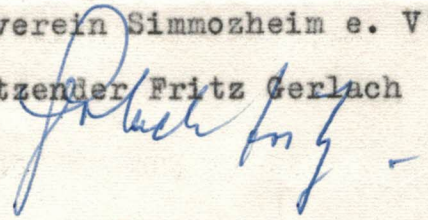 verein Simmozheim e. V
tzender Fritz Gerlach
Gerlach Fritz